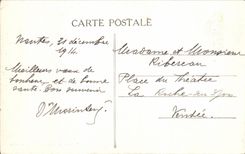 CARTE POSTALE
Nantes, 30 décembre
1914.
Meilleurs vœux de
bonheur et de bonne
santé. Bon souvenir
Madame et Monsieur
Place du Théâtre
La Roche sur Yon
Vendée